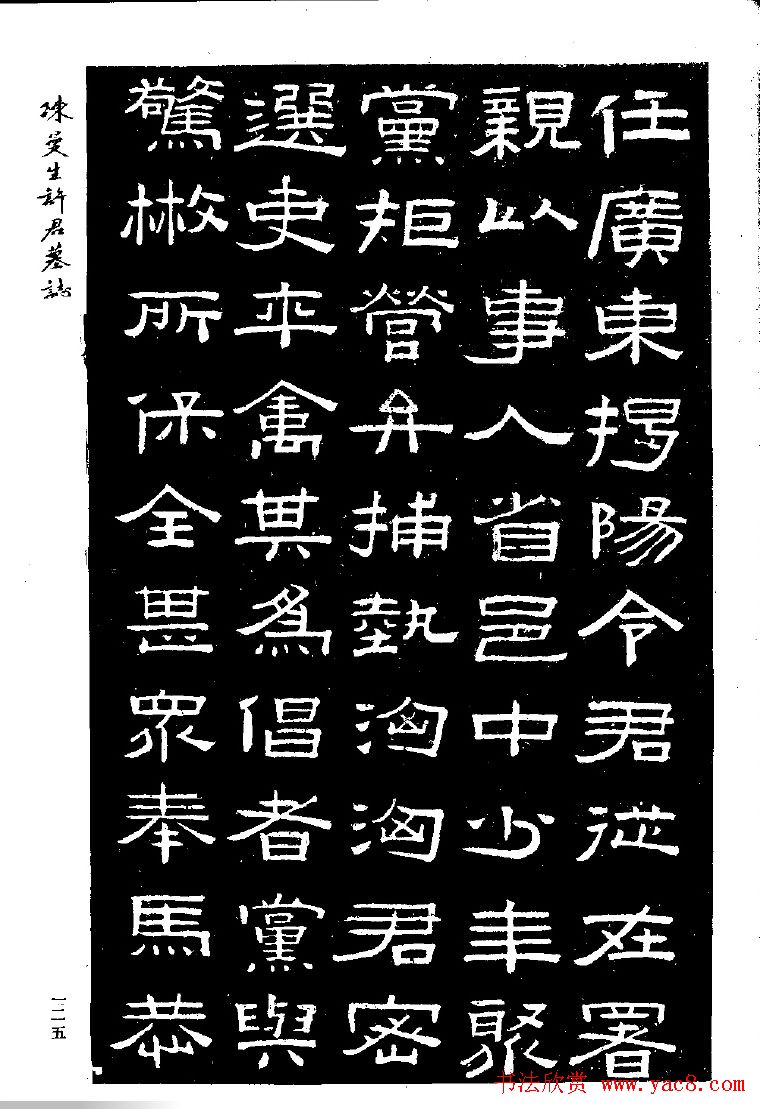 任廣東揭陽令君從在署
親以事入省邑中少年聚
黨拒營弁捕埶洶洶君密
選吏卒禽其爲倡者黨與
驚㪔所保全甚眾奉馬恭
陳曼生許君墓誌
一二五
书法欣赏 www.yac8.com